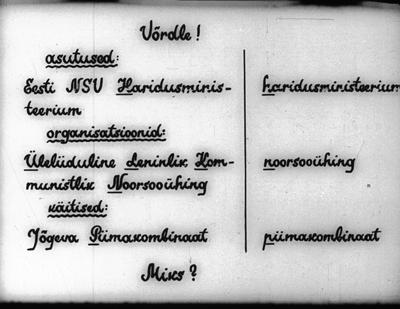 Võrdle!
asutused:
Eesti NSV Haridusminis-
teerium
haridusministeerium
organisatsioonid:
Üleliiduline Leninlik Kom-
munistlik Noorsooühing
noorsooühing
käitised:
Jõgeva Piimakombinaat
piimakombinaat
Miks?